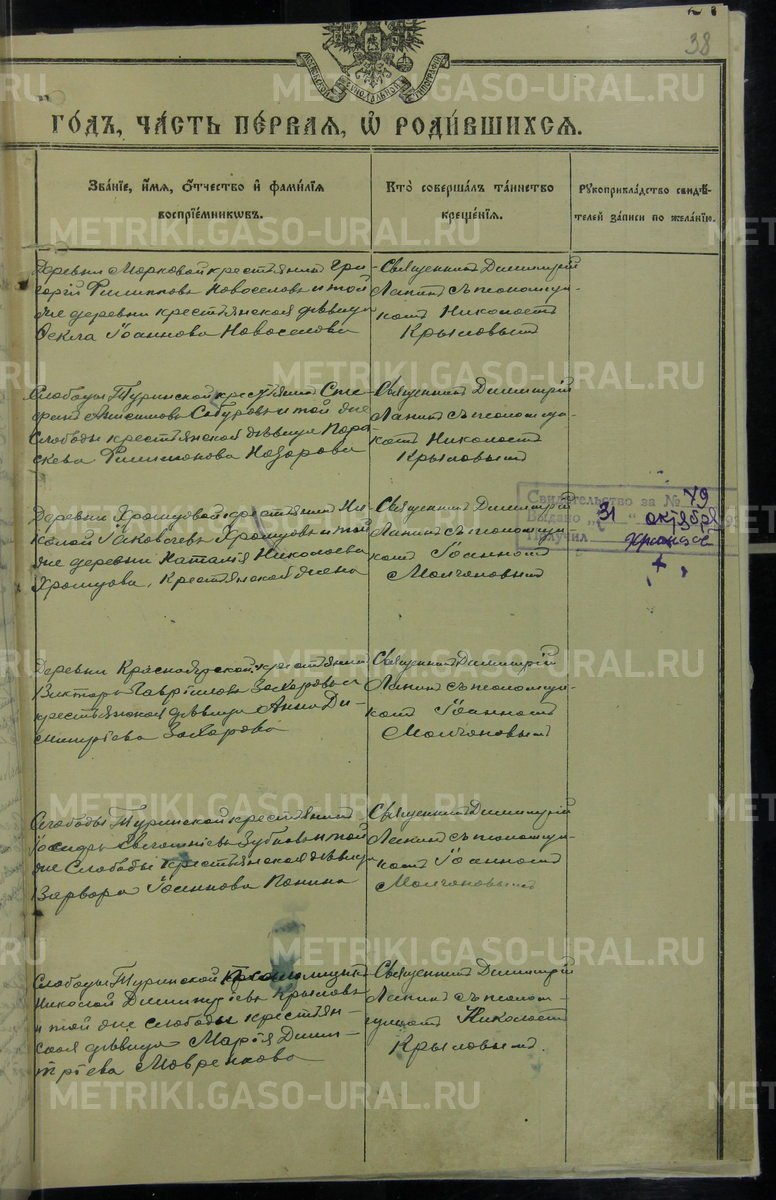 38
METRIKI.GASO-URAL.RU
годъ, часть первая, ѡ родившихся.
Званіе, имя, отчество и фамилія воспріемниковъ.
Кто совершалъ таинство крещенія.
Рукоприкладство свидѣтелей записи по желанію.
Деревни Марковой крестьянинъ Гри-
горій Филипповъ Новоселовъ и той
же деревни крестьянская дѣвица
Іоаннова Новоселова
Священникъ Димитрій
Лапинъ съ псаломщи-
комъ Николаемъ
Крыловымъ
Слободы Туринской крестьянинъ Сте-
фанъ Анисимовъ Сабуровъ и той же
Слободы крестьянская дѣвица Пара-
скева Филимонова Назарова
Священникъ Димитрій
Лапинъ съ псаломщи-
комъ Николаемъ
Крыловымъ
Деревни Храмцовой крестьянинъ Ни-
колай Іаковлевъ Храмцовъ и той
же деревни Наталія Николаева
Храмцова, крестьянская жена
Священникъ Димитрій
Лапинъ съ псаломщи-
комъ Іоанномъ
Молчановымъ
Свидѣтельство за № 79
Выдано „31“ октября
Получил
Деревни Красноярской крестьянинъ
Викторъ Гавріиловъ Захаровъ и
крестьянская дѣвица Анна Ди-
митріева Захарова
Священникъ Димитрій
Лапинъ съ псаломщи-
комъ Іоанномъ
Молчановымъ
Слободы Туринской крестьянинъ
Зубковъ и той
же Слободы крестьянская дѣвица
Варвара Іоаннова Панина
Священникъ Димитрій
Лапинъ съ псаломщи-
комъ Іоанномъ
Молчановымъ
Слободы Туринской псаломщикъ
Николай Димитріевъ Крыловъ
и той же слободы крестьян-
ская дѣвица Марія Дими-
тріева Мавренкова
Священникъ Димитрій
Лапинъ съ псалом-
щикомъ Николаемъ
Крыловымъ.